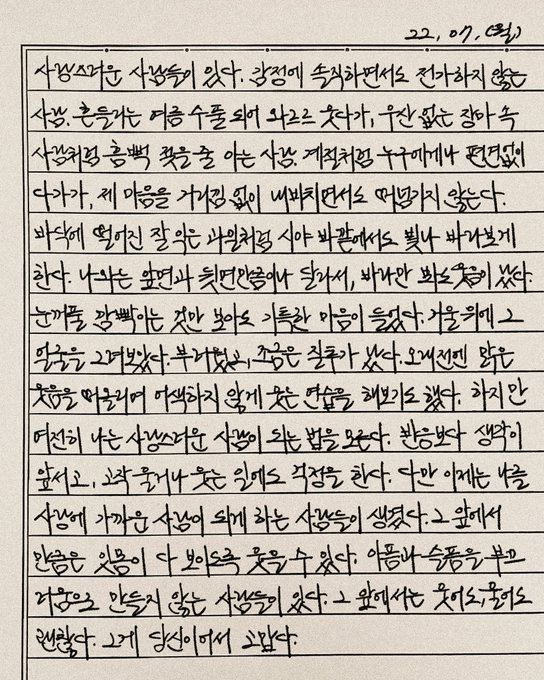 22, 07, (월)
사랑스러운 사람들이 있다. 감정에 솔직하면서도 전가하지 않는
사람. 흔들리는 여름 수풀 되어 와르르 웃다가, 우산 없는 장마 속
사람처럼 흠뻑 젖을 줄 아는 사람. 계절처럼 누구에게나 편견없이
다가가, 제 마음을 거리낌 없이 내비치면서도 떠넘기지 않는다.
바닥에 떨어진 잘 익은 과일처럼 시야 바깥에서도 빛나 바라보게
한다. 나와는 앞면과 뒷면만큼이나 달라서, 바라만 봐도 웃음이 났다.
눈꺼풀 깜빡이는 것만 보아도 기특한 마음이 들었다. 거울 위에 그
얼굴을 그려보았다. 부러웠고, 조금은 질투가 났다. 오래전엔 맑은
웃음을 떠올리며 어색하지 않게 웃는 연습을 해보기도 했다. 하지만
여전히 나는 사랑스러운 사람이 되는 법을 모른다. 반응보다 생각이
앞서고, 고작 울거나 웃는 일에도 걱정을 한다. 다만 이제는 나를
사랑에 가까운 사람이 되게 하는 사람들이 생겼다. 그 앞에서
만큼은 잇몸이 다 보이도록 웃을 수 있다. 아픔과 슬픔을 부끄
러움으로 만들지 않는 사람들이 있다. 그 앞에서는 웃어도, 울어도
괜찮다. 그게 당신이어서 고맙다.